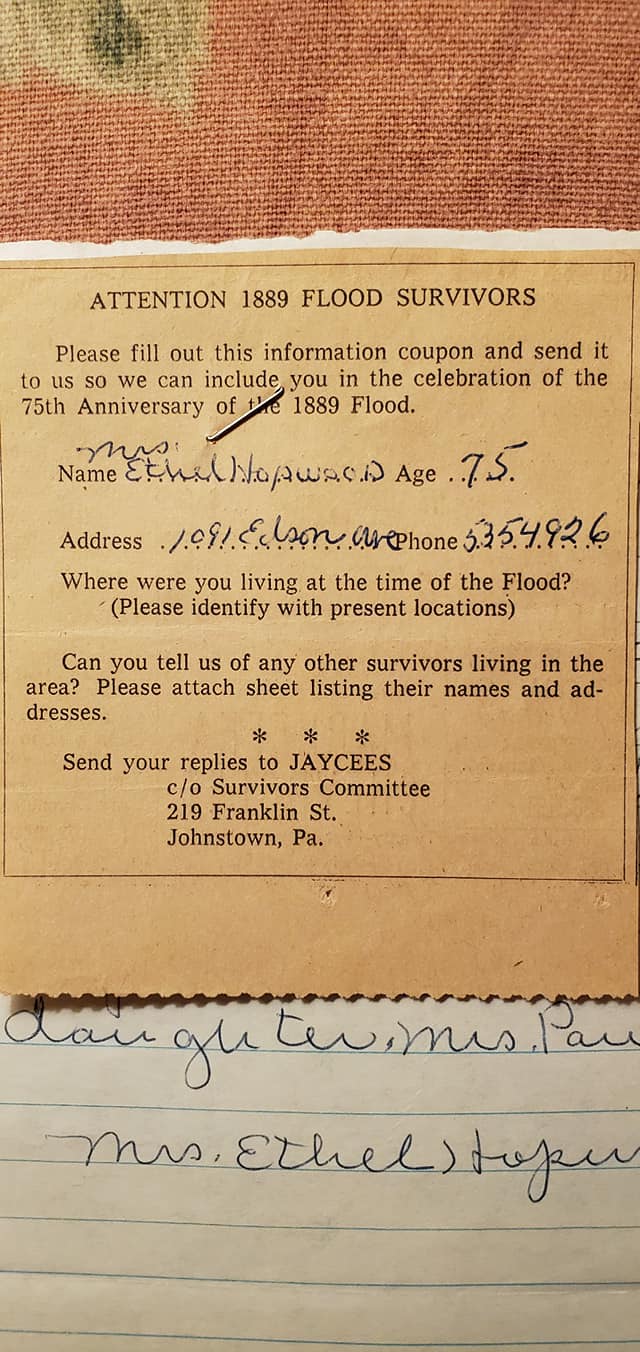 ATTENTION 1889 FLOOD SURVIVORS
Please fill out this information coupon and send it
to us so we can include you in the celebration of the
75th Anniversary of the 1889 Flood.
Mrs.
Name Ethel Hopwood Age 75.
Address 1091 Edson Ave Phone 5354926
Where were you living at the time of the Flood?
(Please identify with present locations)
Can you tell us of any other survivors living in the
area? Please attach sheet listing their names and ad-
dresses.
* * *
Send your replies to JAYCEES
c/o Survivors Committee
219 Franklin St.
Johnstown, Pa.
daughter, Mrs. Pau
Mrs. Ethel Hopw